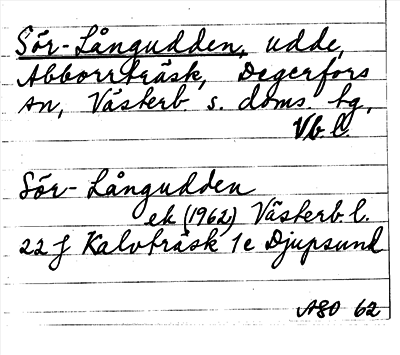 Sör-Långudden, udde,
Abborrträsk, Degerfors
sn, Västerb. s. doms. tg,
Vb.l.
Sör-Långudden
ek (1962) Västerb.l.
22 f Kalvträsk 1e Djupsund
ASO 62